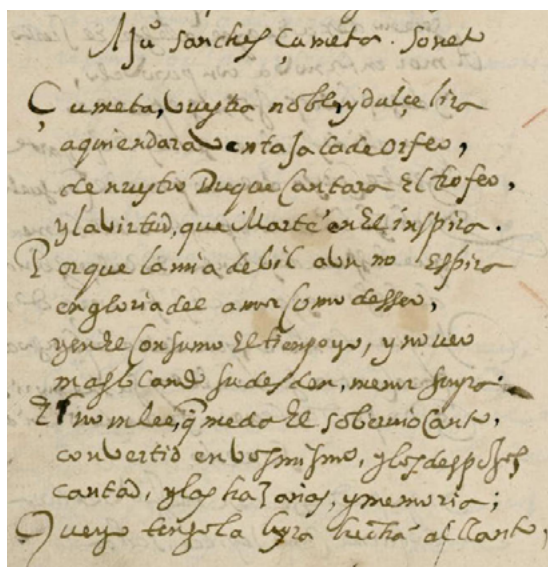 A Juº Sanches Çumeta. Sonet
Çumeta, vuestra noble, y dulçe lira
aquien dara ventaja la de Orfeo,
de nuestro Duque Cantara El trofeo,
y la virtud, que Marte en El inspira.
Porque la mia debil aun no Espira
en gloria del amor Como desseo,
y en El Consumo El tiempo yo, y no veo
mas blando su desden, menor su yra.
El nombre, q̃ me da El sobervio Canto,
convertid en vos mismo, y los despojos
cantad, y las hazañas, y memoria;
Que yo tengo la lyra hecha al llanto,